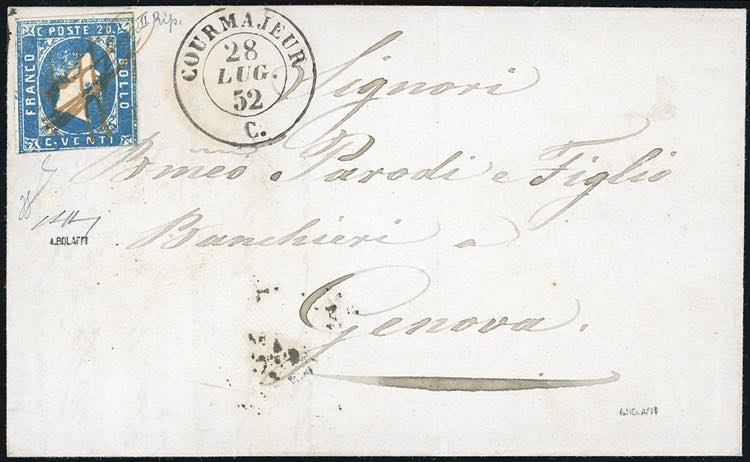 C. POSTE 20.
FRANCO
BOLLO
C. VENTI
II Rip.
COURMAJEUR
28
LUG.
52
C.
Signori
Bmeo Parodi e Figlio
Banchieri a
Genova.
A.BOLAFFI
A.BOLAFFI